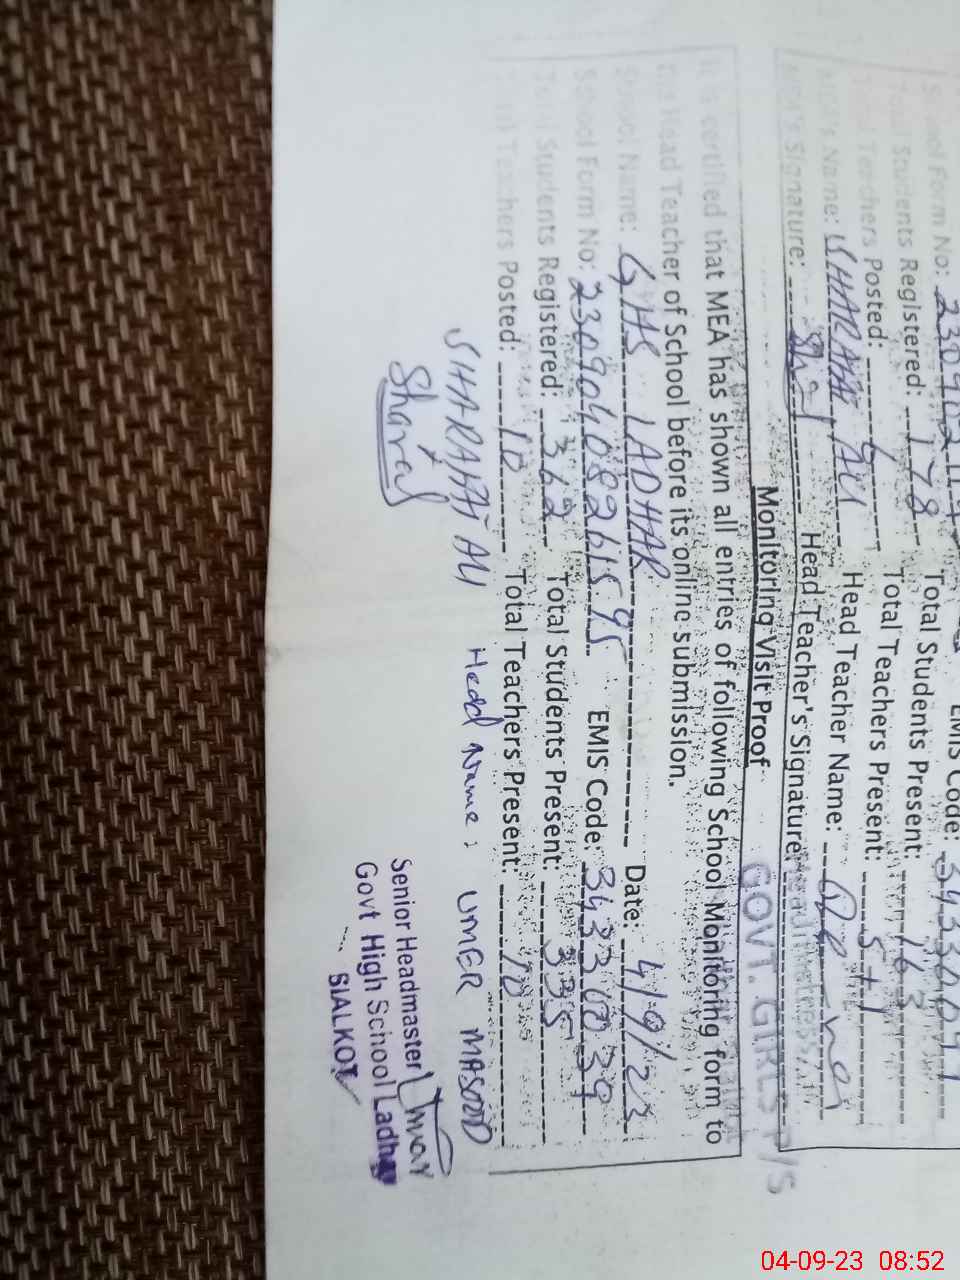 School Form No: 230902117 EMIS Code:
Total Students Registered: 178 Total Students Present: 163
Total Teachers Posted: Total Teachers Present: 5+1
MEA's Name: SHARAFAT ALI Head Teacher Name:
MEA's Signature: Head Teacher's Signature:
Headmistress
GOVT. GIRLS P/S
Monitoring Visit Proof
It is certified that MEA has shown all entries of following School Monitoring form to
the Head Teacher of School before its online submission.
School Name: GHS LADHAR Date: 4/9/23
School Form No: 2309040826159 EMIS Code: 34330039
Total Students Registered: 362 Total Students Present: 335
Total Teachers Posted: 10 Total Teachers Present: 10
SHARAFAT ALI Head Name: UMER MASOOD
Sharaf
Senior Headmaster
Govt High School Ladhar
SIALKOT
04-09-23 08:52